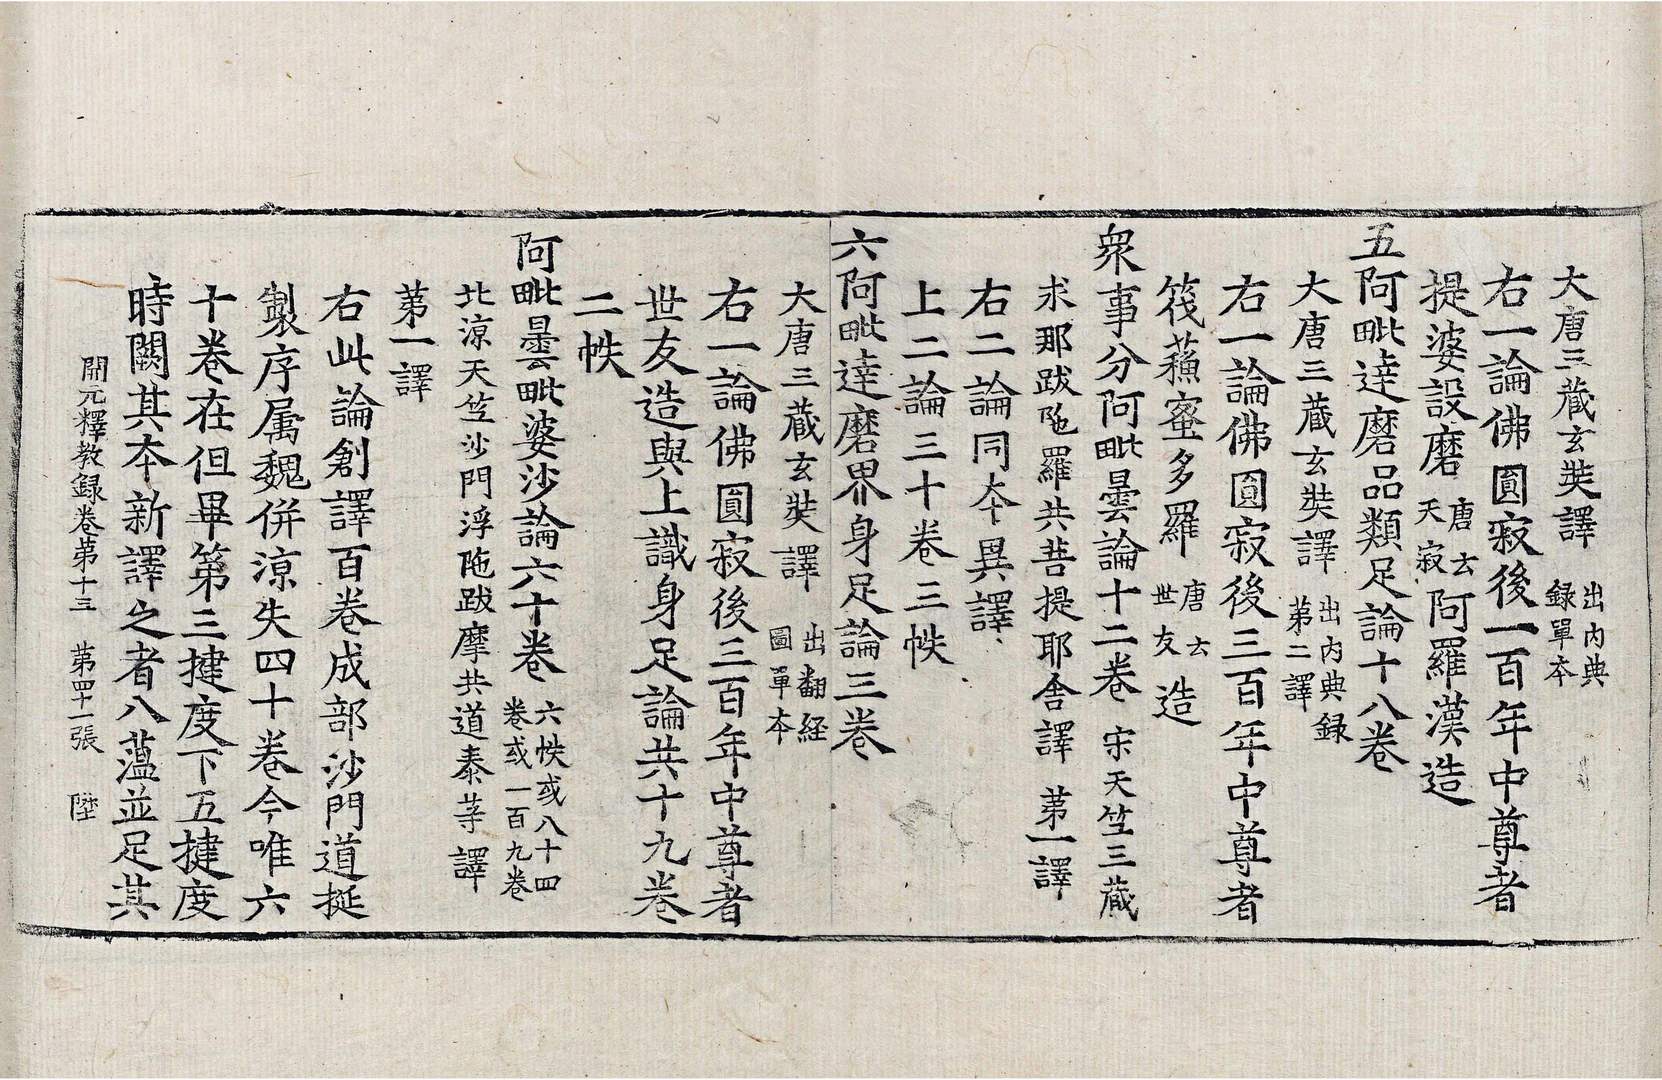 大唐三藏玄奘譯 出內典録單本
右一論佛圓寂後一百年中尊者
提婆設磨 唐云天寂 阿羅漢造
五阿毗達磨品類足論十八卷
大唐三藏玄奘譯 出內典録第二譯
右一論佛圓寂後三百年中尊者
筏蘓蜜多羅 唐云世友 造
衆事分阿毗曇論十二卷 宋天竺三藏
求那跋陁羅共菩提耶舍譯 第一譯
右二論同本異譯
上二論三十卷三帙
六阿毗達磨界身足論三卷
大唐三藏玄奘譯 出翻經圖單本
右一論佛圓寂後三百年中尊者
世友造與上識身足論共十九卷
二帙
阿毗曇毗婆沙論六十卷 六帙或八十四卷或一百九卷
北涼天竺沙門浮陁跋摩共道泰等譯
第一譯
右此論創譯百卷成部沙門道挻
製序属魏併涼失四十卷今唯六
十卷在但畢第三揵度下五揵度
時闕其本新譯之者八蕰並足其
開元釋教録卷第十三 第四十一張 陞